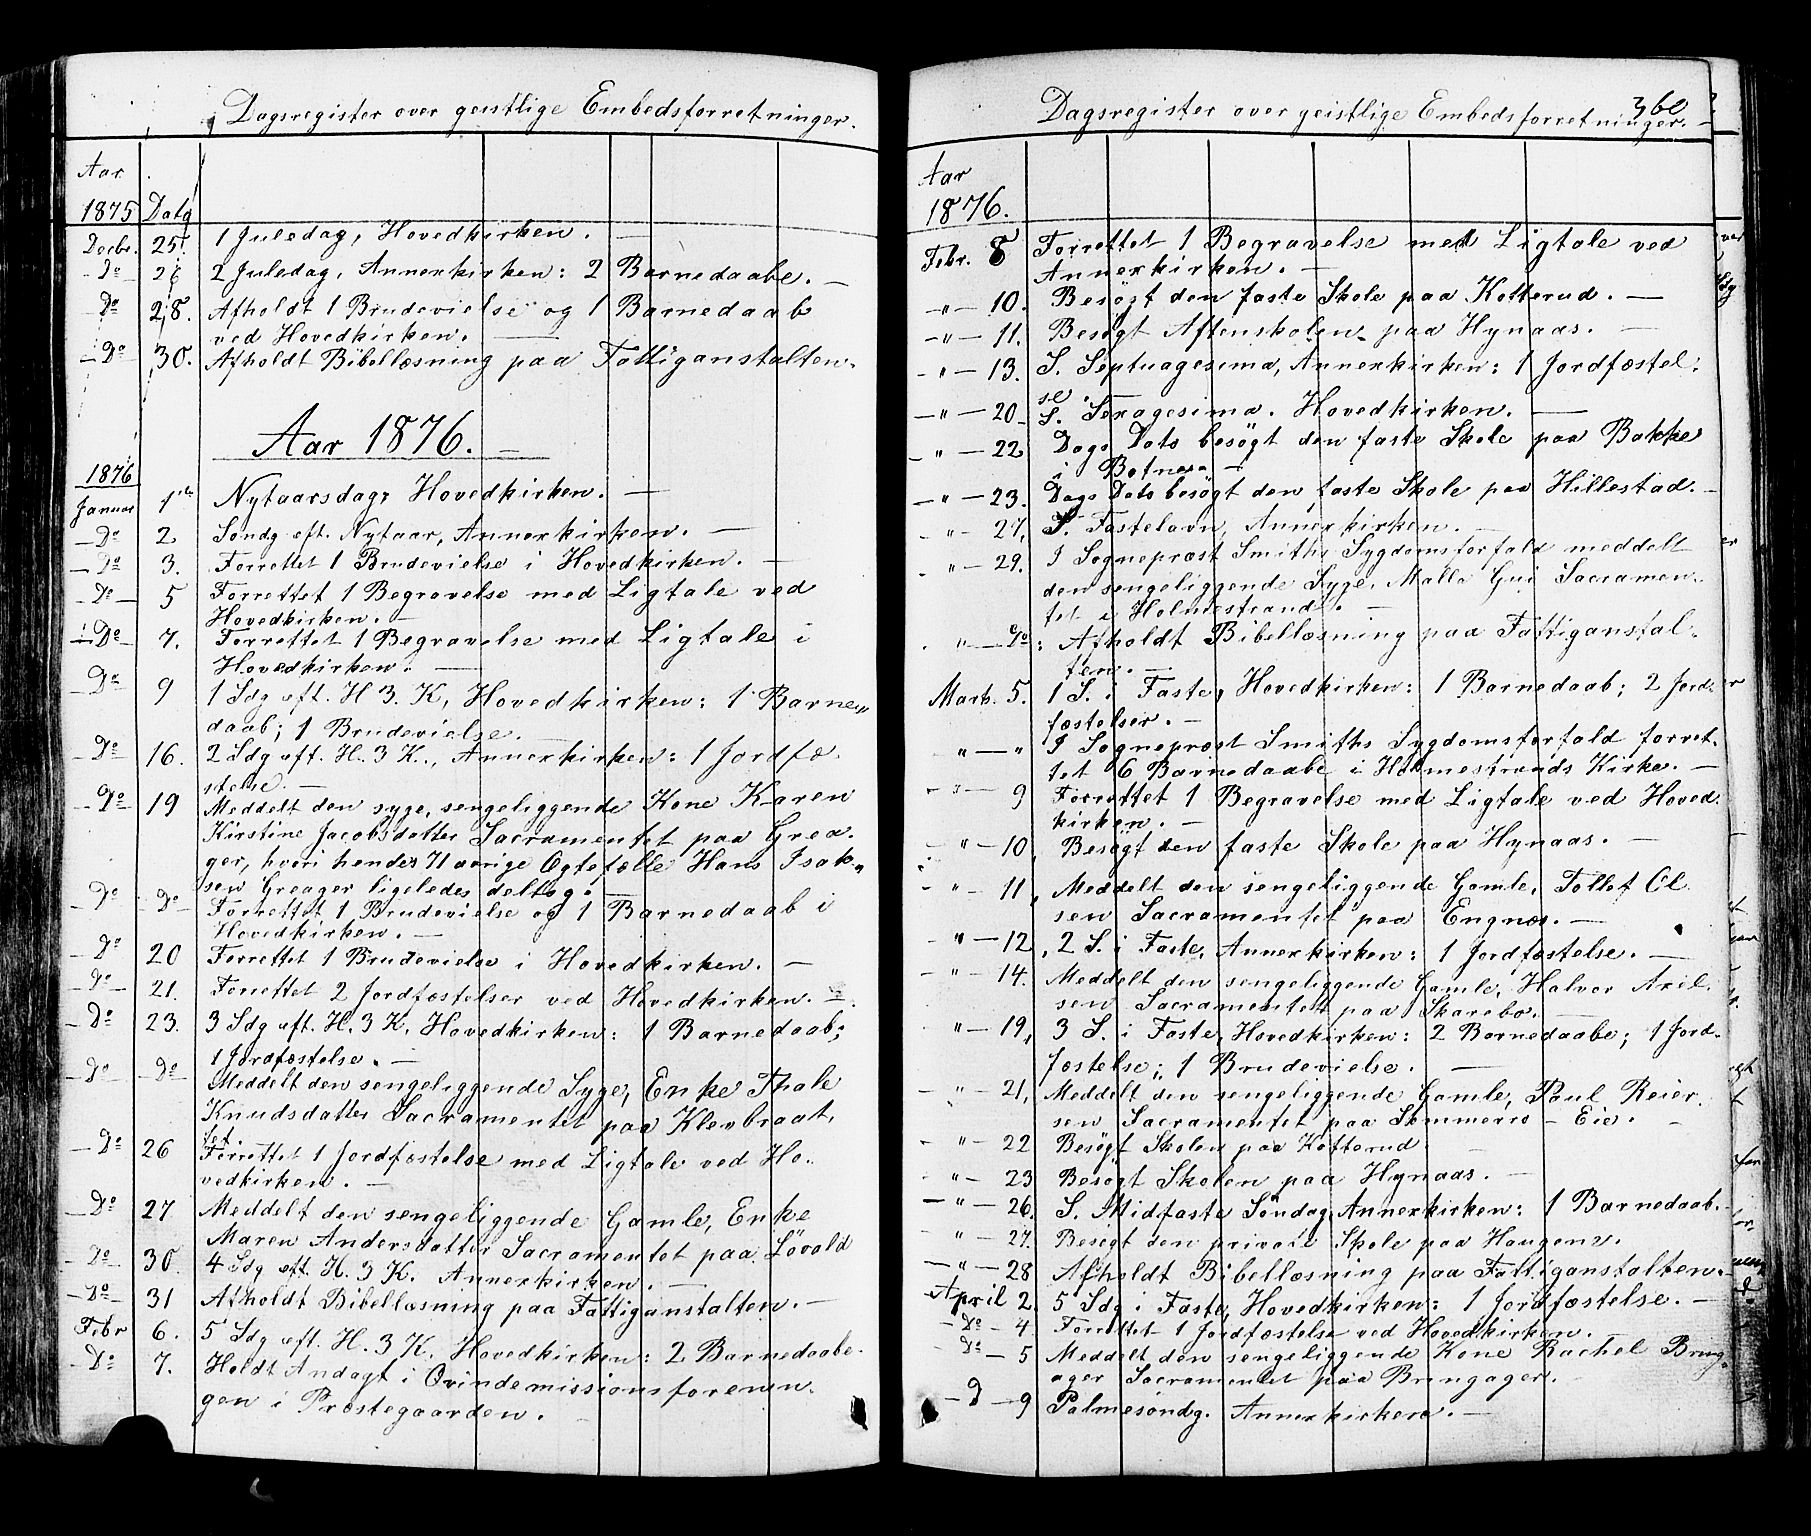 Dagsregister over geistlige Embedsforretninger.
Aar
1875 Datg
Decbr. 25. 1 Juledag, Hovedkirken. —
— Do 26 2 Juledag, Annexkirken: 2 Barnedaabe. —
— Do 28. Afholdt 1 Brudevielse og 1 Barnedaab
ved Hovedkirken. —
— Do 30. Afholdt Bibellæsning paa Fattiganstalten.
Aar 1876. —
1876
Januar 1ste Nytaarsdag, Hovedkirken. —
— Do 2 Søndg eft. Nytaar, Annexkirken. —
— Do 3. Forrettet 1 Brudevielse i Hovedkirken. —
— Do — 5 Forrettet 1 Begravelse med Ligtale ved
Hovedkirken. —
— Do — 7. Forrettet 1 Begravelse med Ligtale i
Hovedkirken. —
— Do 9 1 Sdg eft. H. 3. K, Hovedkirken: 1 Barne„
daab; 1 Brudevielse. —
— Do — 16. 2 Sdg eft. H. 3 K., Annexkirken: 1 Jordfæ-
stelse. —
— Do 19 Meddelt den syge, sengeliggende Kone Karen
Kirstine Jacobsdatter Sacramentet paa Grea-
ger, hvori hendes 71 aarige Ægtefælle Hans Isak„
sen Greager ligeledes deltog. —
— Do — Do — Forrettet 1 Brudevielse og 1 Barnedaab i
Hovedkirken. —
— Do 20 Forrettet 1 Brudevielse i Hovedkirken. —
— Do — 21. Forrettet 2 Jordfæstelser ved Hovedkirken. —
— Do 23. 3 Sdg eft. H. 3 K, Hovedkirken: 1 Barnedaab;
1 Jordfæstelse. —
— Do — Do — Meddelt den sengeliggende Syge, Enke Thale
Knudsdatter Sacramentet paa Klevbraat,
tet.
— Do 26 Forrettet 1 Jordfæstelse med Ligtale ved Ho-
vedkirken. —
— Do 27 Meddelt den sengeliggende Gamle, Enke
Maren Andersdatter Sacramentet paa Løvald
— Do 30. 4 Sdg eft. H. 3 K. Annexkirken. —
— Do — 31 Afholdt Bibellæsning paa Fattiganstalten. —
Febr 6. 5 Sdg eft. H. 3 K. Hovedkirken: 2 Barnedaabe.
— Do 7. Holdt Andagt i Qvindemissionsforenin-
gen i Præstegaarden. —
Dagsregister over geistlige Embedsforretninger.
360
Aar
1876.
Febr. 8 Forrettet 1 Begravelse med Ligtale ved
Annexkirken. —
— „ — 10. Besøgt den faste Skole paa Kotterud. —
— „ — 11. Besøgt Aftenskolen paa Hynaas. —
— „ — 13. S. Septuagesima, Annexkirken: 1 Jordfæstel:
se.
— „ — 20 S. Sexagesima. Hovedkirken. —
— „ — 22 Dags Dato besøgt den faste Skole paa Bakke
i Botne. —
— „ — 23. Dags Dato besøgt den faste Skole paa Hillestad. —
„ — 27, S. Fastelavn, Annexkirken. —
— „ — 29. I Sognepræst Smiths Sygdomsforfald meddelt
den sengeliggende Syge, Malla Gui Sacramen-
tet i Holmestrand. —
„ — Do: Afholdt Bibellæsning paa Fattiganstal-
ten. —
Marts. 5. 1 S. i Faste, Hovedkirken: 1 Barnedaab; 2 Jord-
fæstelser. —
„ — „ I Sognepræst Smiths Sygdomsforfald forret-
tet 6 Barnedaabe i Holmestrands Kirke. —
— „ — 9 Forrettet 1 Begravelse med Ligtale ved Hoved-
kirken. —
— „ — 10, Besøgt den faste Skole paa Hynaas. —
— „ — 11, Meddelt den sengeliggende Gamle, Tollef Ol
sen Sacramentet paa Engnæs. —
— „ — 12, 2 S. i Faste, Annexkirken: 1 Jordfæstelse. —
— „ — 14. Meddelt den sengeliggende Gamle, Halvor Axel-
sen Sacramentet paa Skarebo. —
„ — 19, 3 S. i Faste, Hovedkirken: 2 Barnedaabe; 1 Jord-
fæstelse; 1 Brudevielse. —
„ — 21, Meddelt den sengeliggende Gamle, Paul Reier-
sen Sacramentet paa Sommerro — Eie. —
— „ — 22 Besøgt Skolen paa Kotterud
— „ — 23 Besøgt Skolen paa Hynaas. —
— „ — 26. S. Midfaste Søndag, Annexkirken: 1 Barnedaab.
„ — 27. Besøgt den private Skole paa Haugene.
— „ — 28 Afholdt Bibellæsning paa Fattiganstalten. —
April 2. 5 Sdg i Faste, Hovedkirken: 1 Jordfæstelse. —
— Do — 4 Forrettet 1 Jordfæstelse ved Hovedkirken. —
— Do — 5 Meddelt den sengeliggende Kone Rachel Bring-
ager Sacramentet paa Bringager. —
— D — 9 Palmesøndg. Annexkirken. —